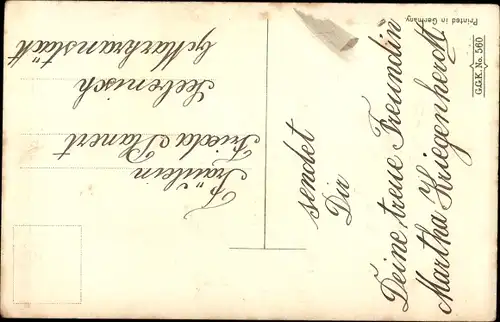 sendet
Dir
Deine treue Freundin
Martha Kriegenherdt.
Fräulein
Frieda Planert
Seebenisch
b/Markranstädt
G.G.K. No. 560
Printed in Germany